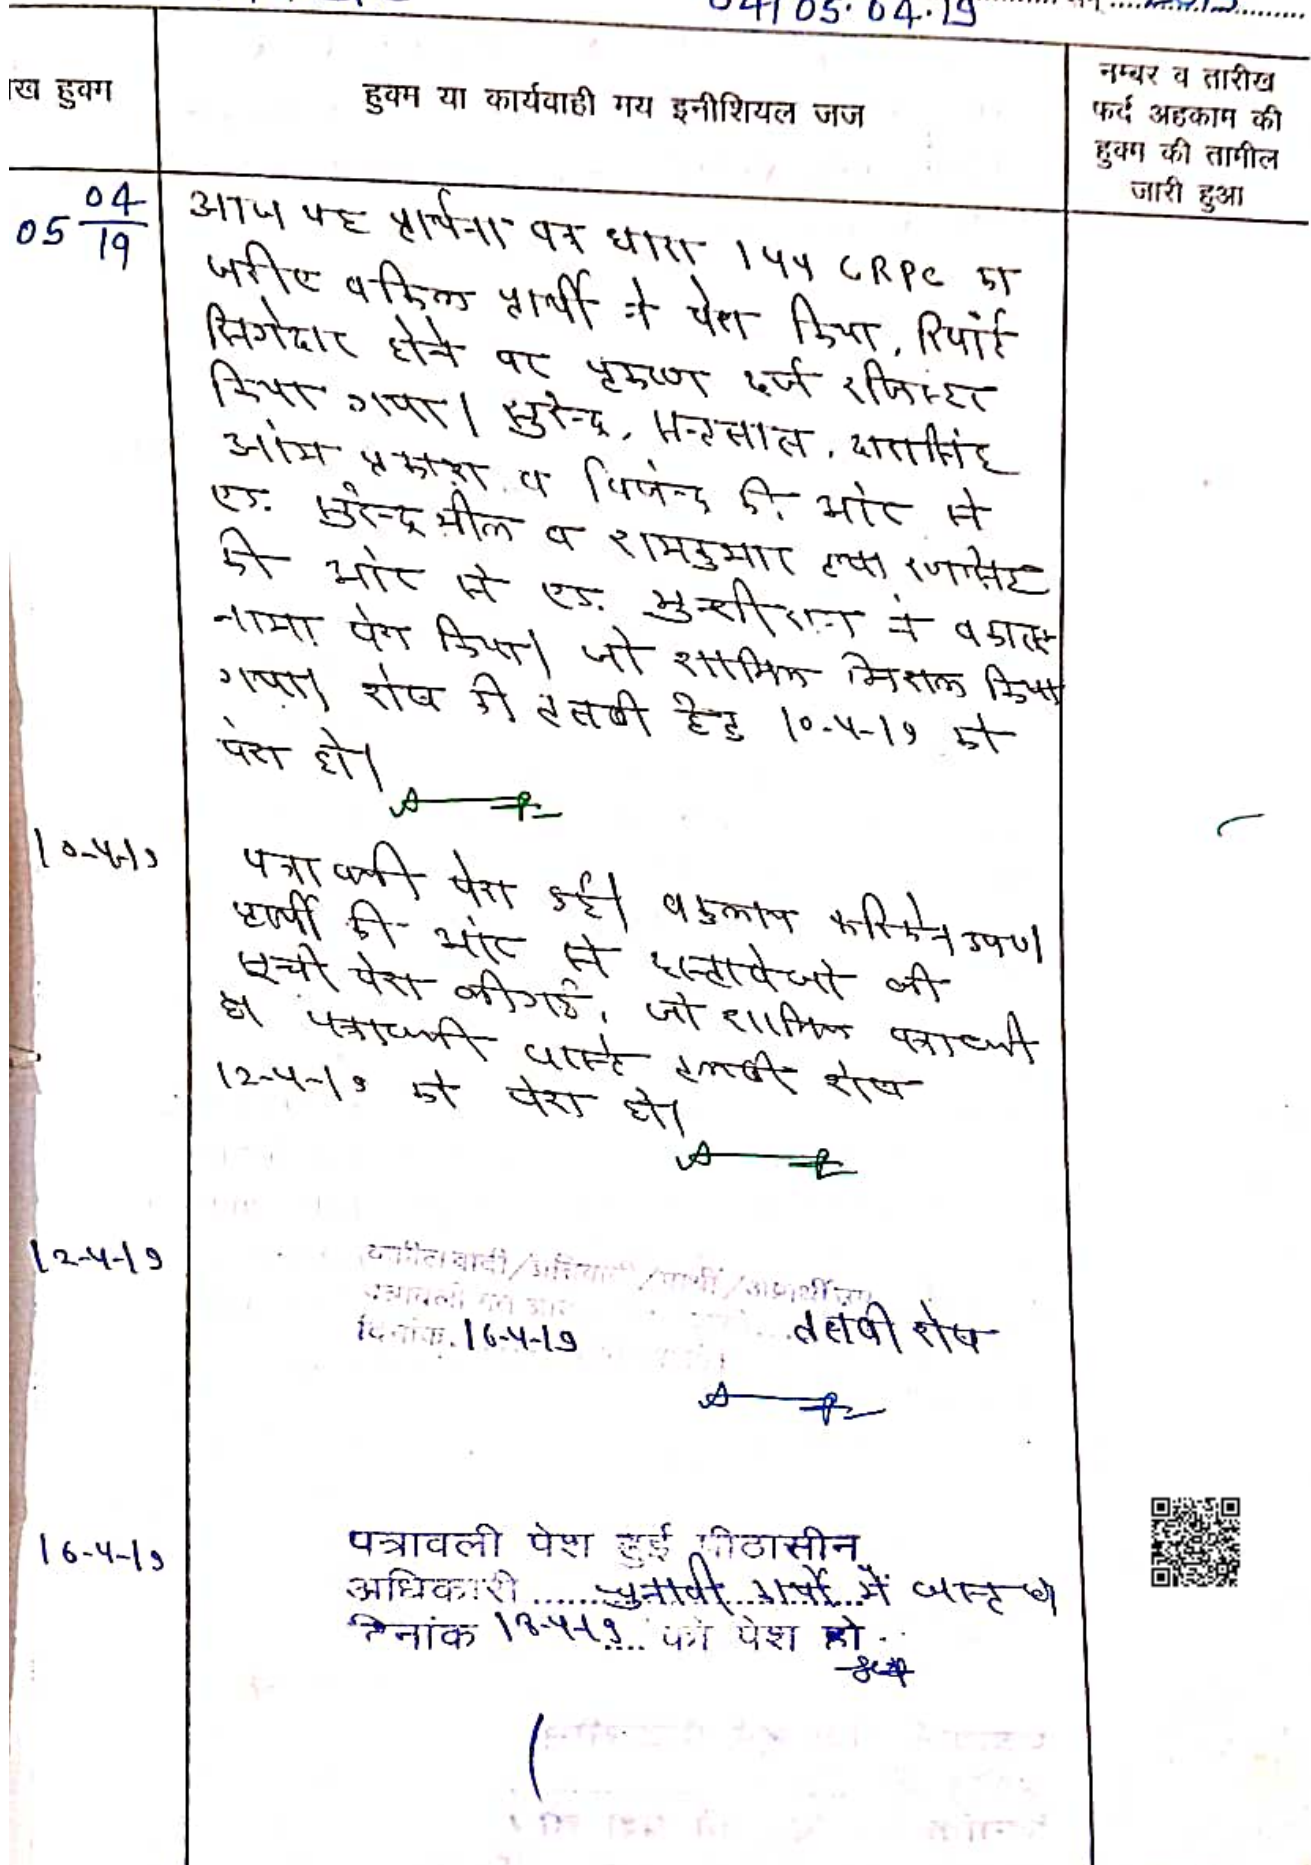 04/05.04.19
हुक्म
हुक्म या कार्यवाही मय इनीशियल जज
नम्बर व तारीख
फर्द अहकाम की
हुक्म की तामील
जारी हुआ
05 04/19
आज यह प्रार्थना पत्र धारा 144 CRPC का
जरीए वकिल प्रार्थी ने पेश किया, रिपोर्ट
होने पर प्रकरण दर्ज रजिस्टर
किया गया। सुरेन्द्र,
ओम प्रकाश व विजेन्द्र की ओर से
एड. सुरेन्द्र भील व रामकुमार
की ओर से एड. मुन्शीराम ने वकालत
नामा पेश किया। जो शामिल मिसल किया
गया। शेष की तलबी हेतु 10-4-19 को
पेश हो।
10-4-19
पत्रावली पेश हुई। वकुलाय फरिकेन उप०।
प्रार्थी की ओर से दस्तावेजो की
सूची पेश की गई, जो शामिल पत्रावली
हो पत्रावली वास्ते तलबी शेष
12-4-19 को पेश हो।
12-4-19
दिनांक 16-4-19 तलबी शेष
16-4-19
पत्रावली पेश हुई पीठासीन
अधिकारी ......चुनावी कार्यो में व्यस्त है
दिनांक 18-4-19 को पेश हो